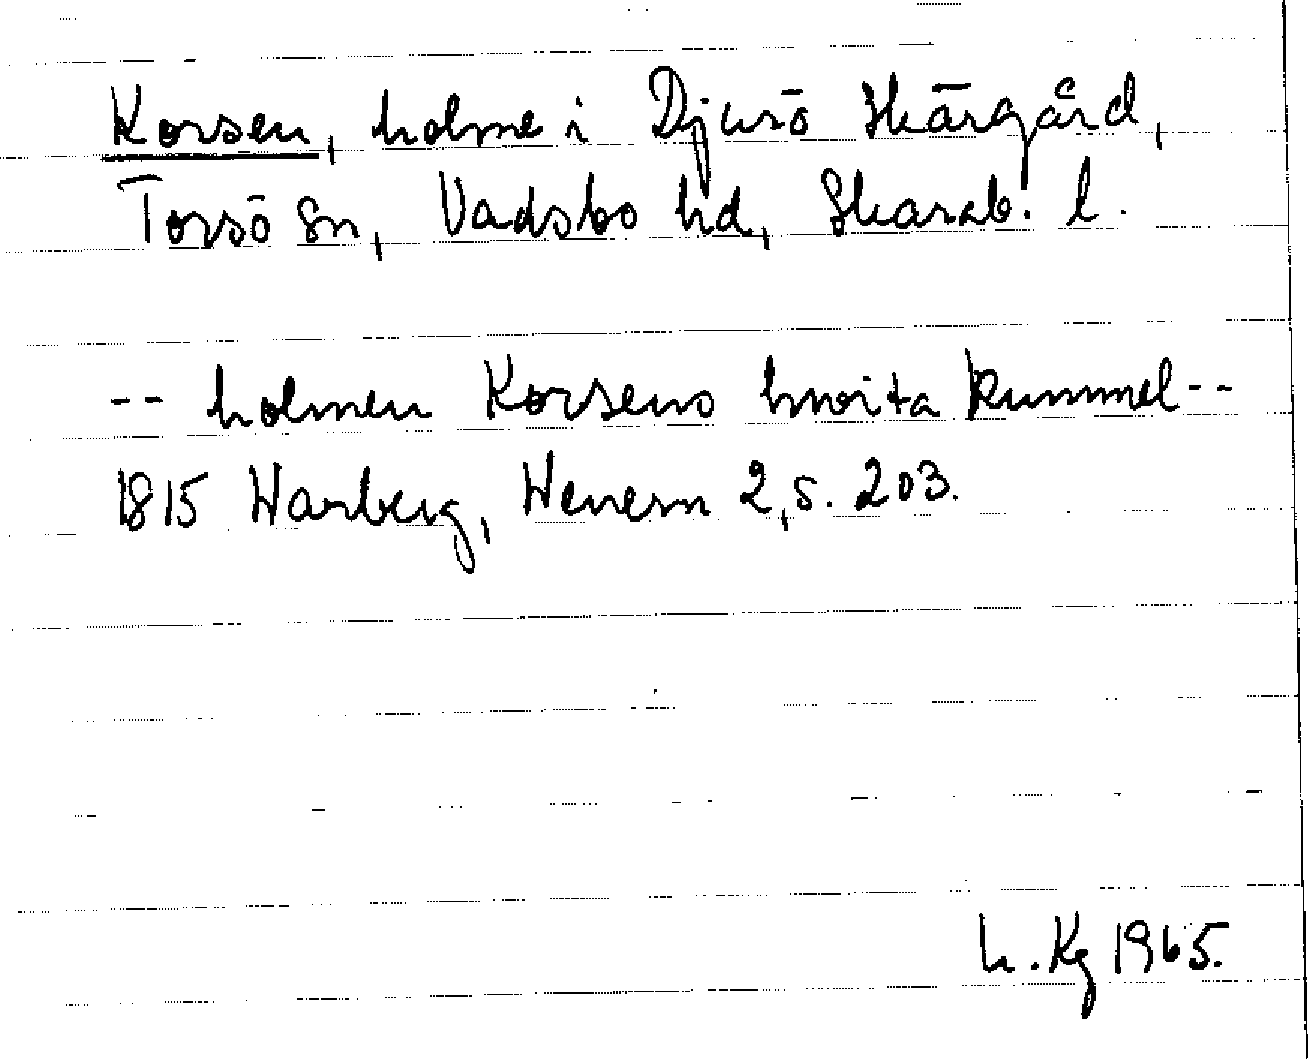 Korsen, holme i Djurö skärgård,
Torsö sn, Vadsbo hd, Skarab. l.
-- holmen Korsens hvita kummel --
1815 Warberg, Wenern 2, s. 203.
h. Kg 1965.